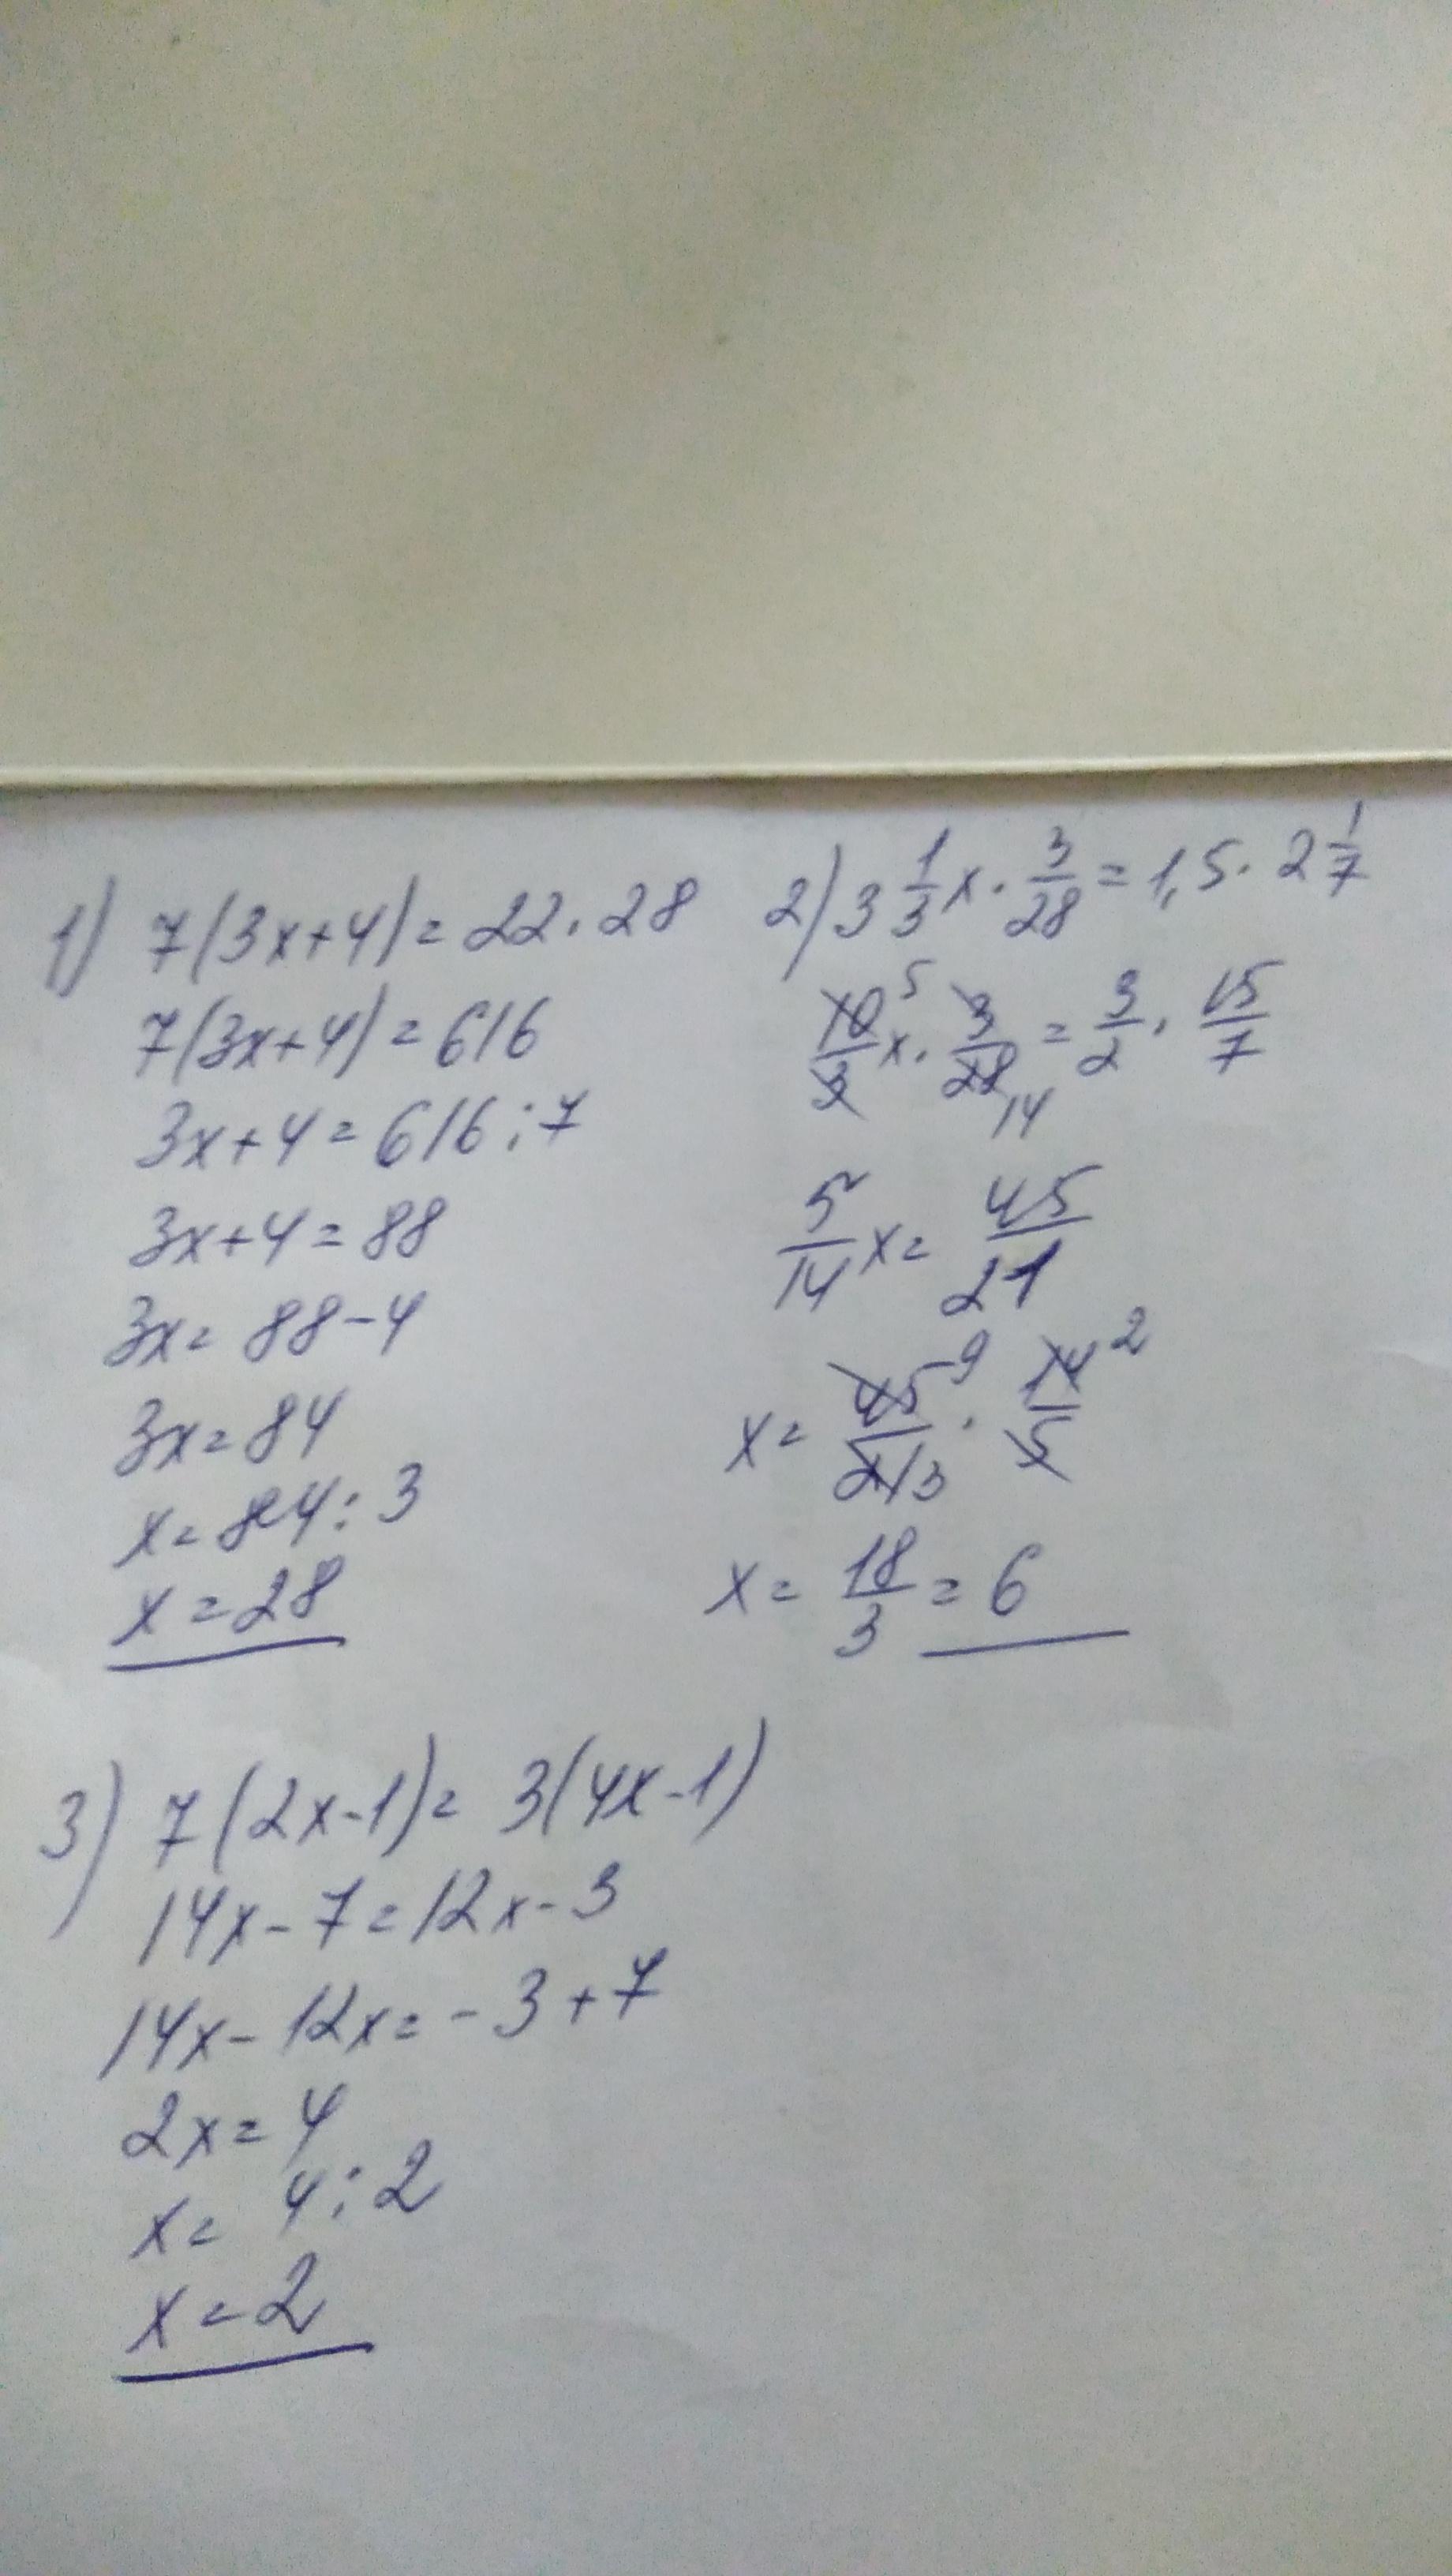 1) 7(3x+4)=22·28
7(3x+4)=616
3x+4=616:7
3x+4=88
3x=88-4
3x=84
x=84:3
x=28
2) 3 1/3 x · 3/28 = 1,5 · 2 1/7
10/3 5 x · 3/28 14 = 3/2 · 15/7
5/14 x = 45/21
x = 45 9/21 3 · 14 2/5
x = 18/3 = 6
3) 7(2x-1)= 3(4x-1)
14x-7=12x-3
14x-12x=-3+7
2x=4
x= 4:2
x=2